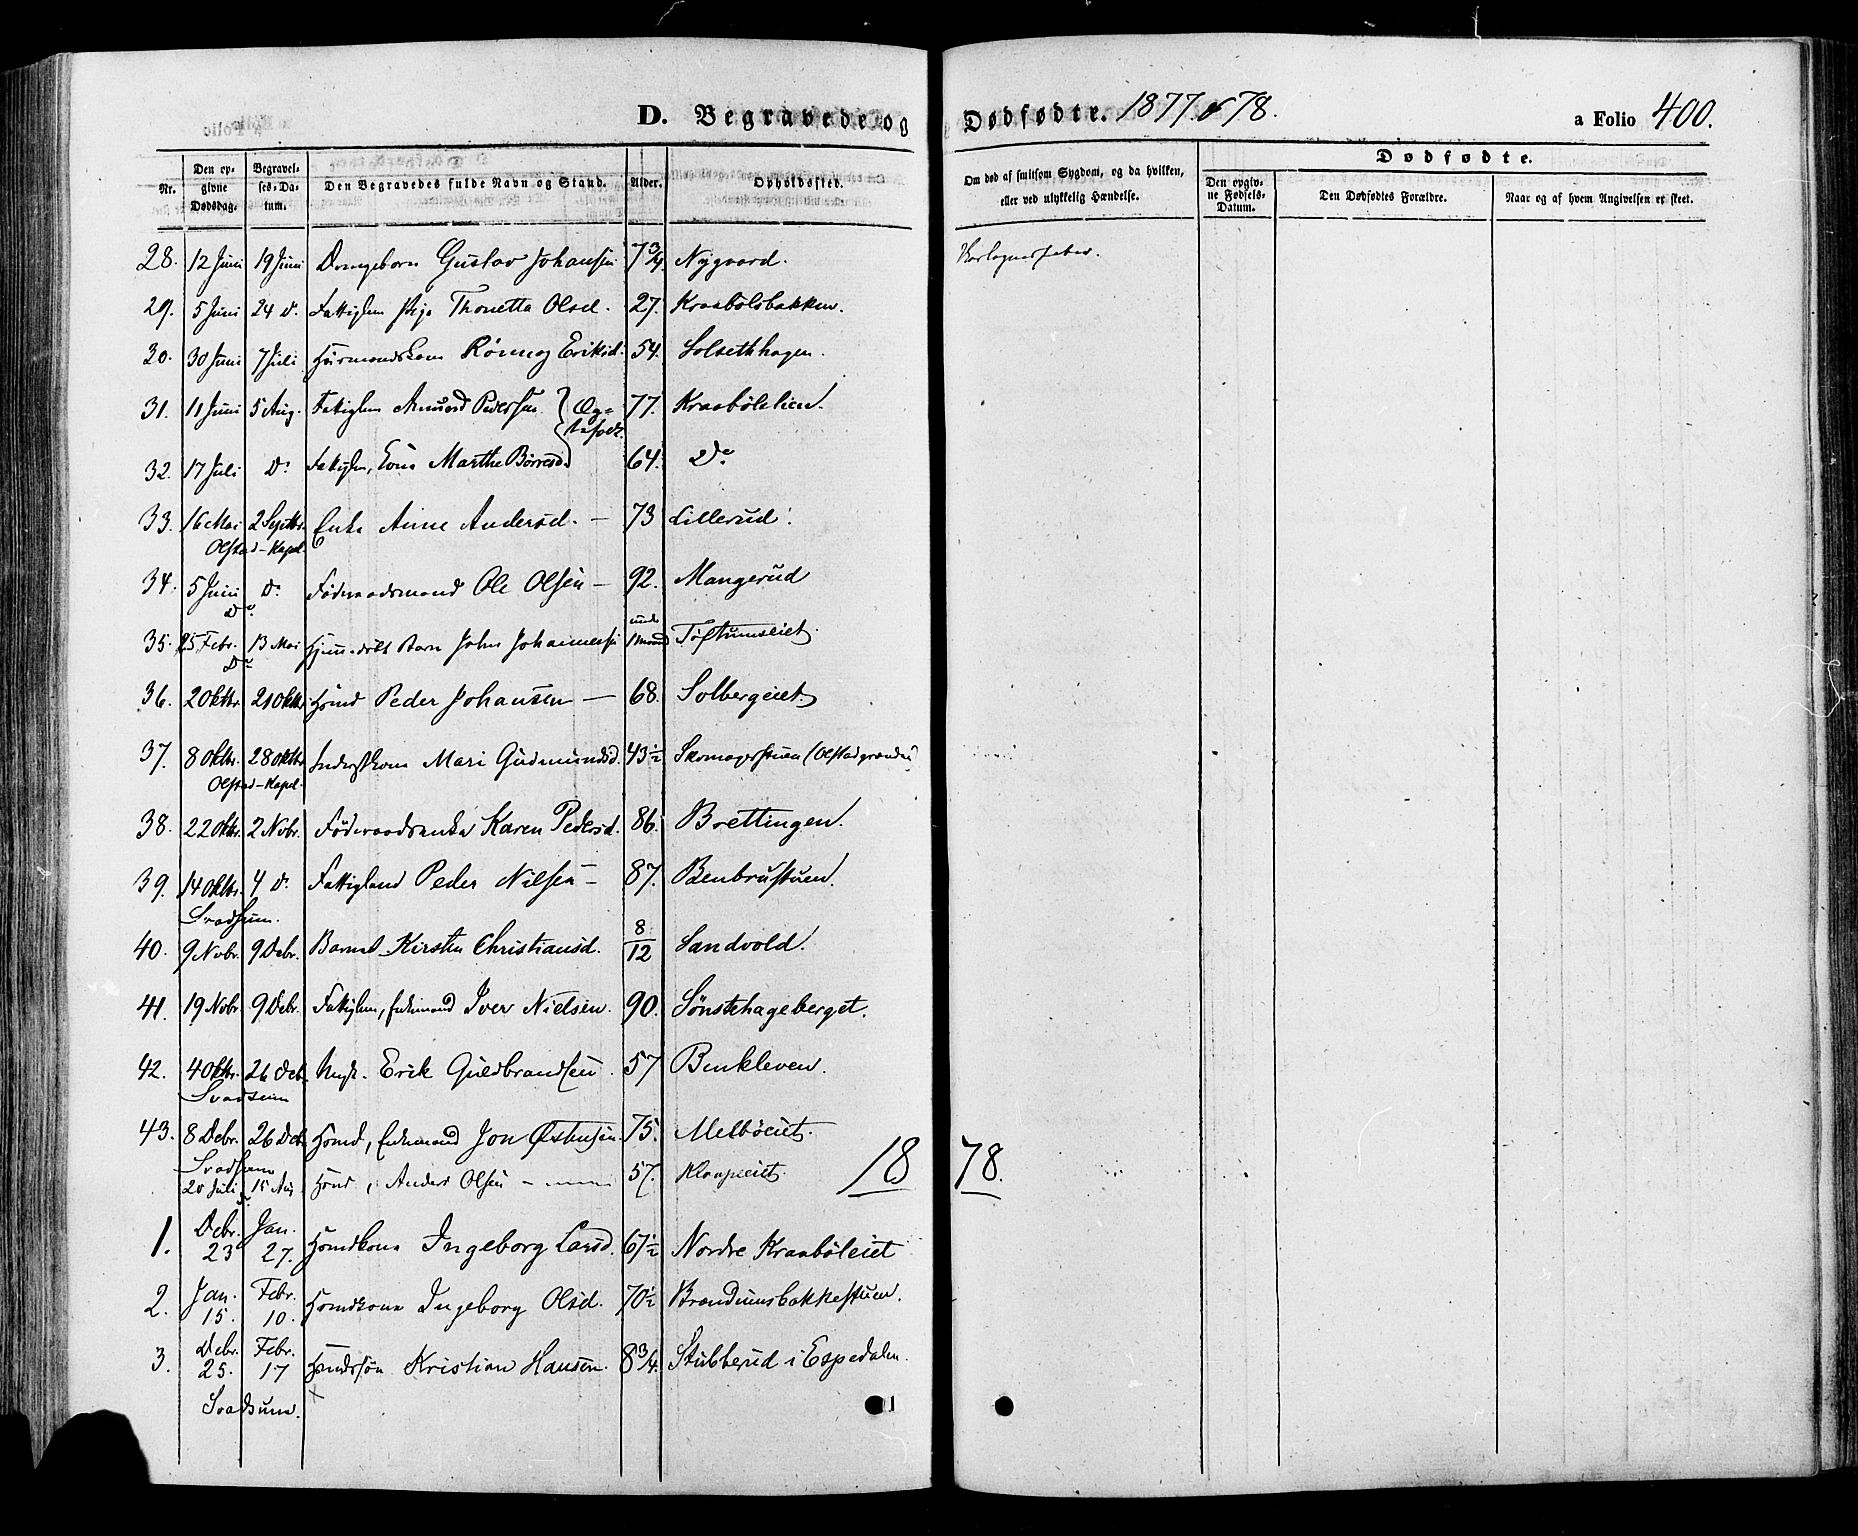 D. Begravede og Dødfødte. 1877 & 78. a Folio 400.
Nr. Den opgivne Dødsdag. Begravelses-Datum. Den Begravedes fulde Navn og Stand. Alder. Opholdssted. Om død af smitsom Sygdom, og da hvilken, eller ved ulykkelig Hændelse. Dødfødte. Den opgivne Fødsels-Datum. Den Dødfødtes Forældre. Naar og af hvem Angivelsen er skeet.
28. 12 Juni 19 Juni Drengebarn Gustav Johansen 7 3/4 Nygaard.
29. 5 Juni 24 d. Fattiglem Pige Thonetta Olsd. 27. Kraabølsbakken.
30. 30 Juni 7 Juli Rønnog Eriksd. 54. Solsethhagen.
31. 11 Juni 5 Aug. Fattiglem Amund Pedersen 77. Kraabølslien.
32. 17 Juli do. Fattiglem, Kone Marthe Børresd. 64. Do
33. 16 Mai 2 Septbr. Enke Anne Andersd. — 73 Lillerud.
Olstad-Kapel.
34. 5 Juni do. Føderaadsmand Ole Olsen — 92. Mangerud
Do.
35. 25 Febr. 13 Mai Hjemmedøbt Barn John Johannessen under 1 Maaned Toftumseiet.
Do
36. 2 Oktbr. 21 Oktbr. Hsmd Peder Johansen — 68. Solbergeiet.
37. 8 Oktbr. 28 Oktbr. Inderstkone Mari Gudmundsd. 43 1/2 Skomagerstuen (Olstadgrænden)
Olstad-Kapel.
38. 22 Oktbr. 2 Novbr. Føderaadsenke Karen Pedersd. 86. Brettingen.
39. 14 Oktbr. 4 d. Peder Nilsen — 87. Benbrustuen.
Svadsum.
40. 9 Novbr. 9 Debr. Barnet Kirsten Christiansd. 8/12 Sandvold.
41. 19 Novbr. 9 Debr. Fattiglem, Enkemand Iver Nielsen. 90. Sønstehageberget.
42. 4 Oktbr. 26 Deb. Ungk. Erik Guldbrandsen 57 Benkleven.
Svadsum
43. 8 Debr. 26 Deb. Hsmd, Enkemand Jon Østensen. 75. Melbøeiet.
Svadsum
20 Juli 15 Aug Hsmd, Anders Olsen — 57. Klaapeiet.
18 78.
1. Debr. 23 Jan. 27. Hsmdkone Ingeborg Larsd. 67 1/2 Nordre Kraabøleiet
2. Jan. 15. Febr. 10. Hsmdkone Ingeborg Olsd. 70 1/2 Brændumsbakkestuen.
3. Debr. 25. Febr. 17 Husmdssøn Kristian Hansen. 8 3/4. Stubberud i Espedalen.
Svadsum.